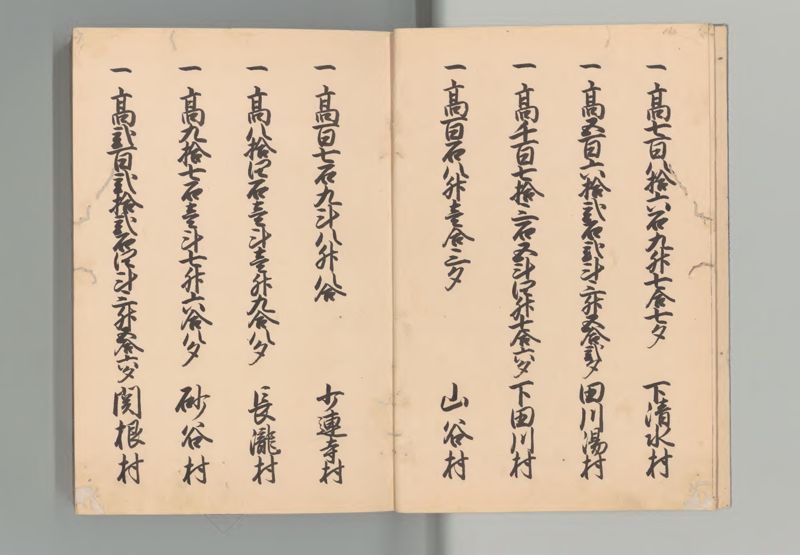 一 高七百八拾六石九升七合七夕 下清水村
一 高五百六拾弐石弐斗二升五合弐夕 田川湯村
一 高千百七拾二石五斗四升七合六夕 下田川村
一 高百石八升壱合三夕 山谷村
一 高百七石九斗八升八合 少連寺村
一 高八拾四石壱斗壱升九合八夕 長瀧村
一 高九拾七石壱斗七升六合八夕 砂谷村
一 高弐百弐拾弐石四斗二升五合六夕 関根村